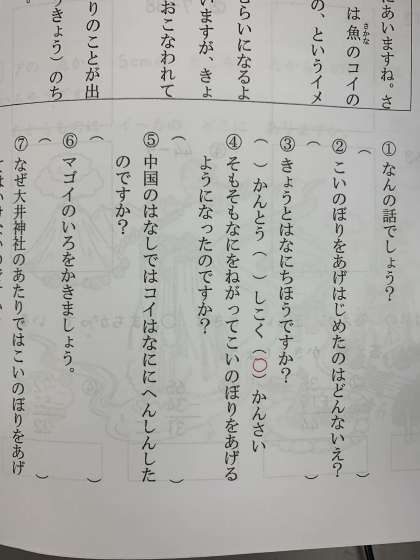 にあいますね。さ
は魚のコイの
さかな
の、というイメ
むらいになるよ
いますが、きょ
おこなわれて
りのことが出
うきょう）のち
①なんの話でしょう？
（
）
②こいのぼりをあげはじめたのはどんないえ？
（
）
③きょうとはなにちほうですか？
（　）かんとう（　）しこく（〇）かんさい
④そもそもなにをねがってこいのぼりをあげる
ようになったのですか？
（
）
⑤中国のはなしではコイはなににへんしんした
のですか？
（
）
⑥マゴイのいろをかきましょう。
（
）
⑦なぜ大井神社のあたりではこいのぼりをあげ